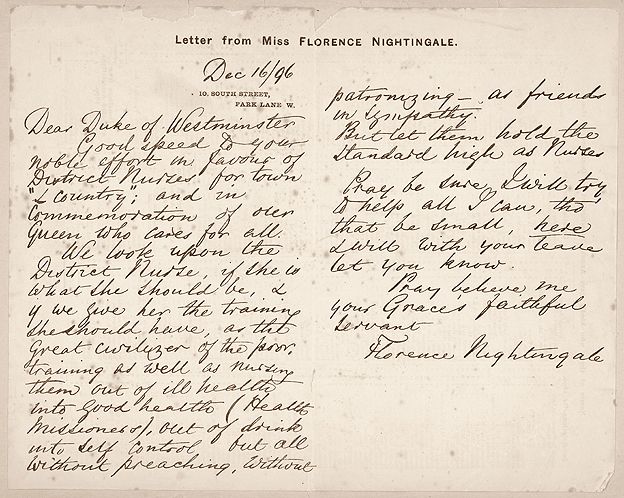 Letter from Miss FLORENCE NIGHTINGALE.
Dec 16/96
10, SOUTH STREET,
PARK LANE W.
Dear Duke of Westminster
Good speed to your
noble effort in favour of
District Nurses for town
"& country"; and in
Commemoration of our
Queen who cares for all.
We look upon the
District Nurse, if she is
what she should be, &
if we give her the training
she should have, as the
great civilizer of the poor,
training as well as nursing
them out of ill health
into good health (Health
Missioners), out of drink
into self control but all
without preaching, without
patronizing – as friends
in sympathy.
But let them hold the
standard high as Nurses
Pray be sure I will try
to help all I can, tho'
that be small, here
I will with your leave
let you know.
Pray believe me
your Grace's faithful
servant
Florence Nightingale